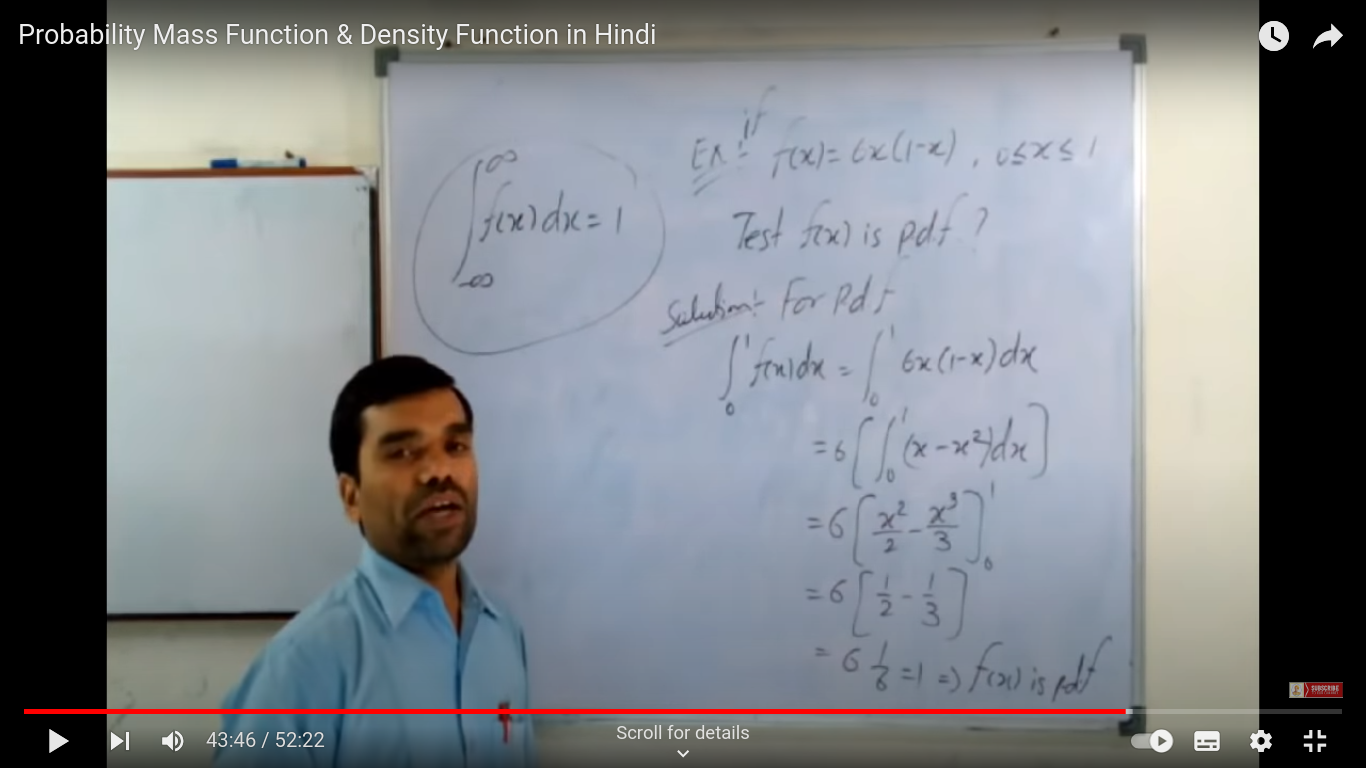 Probability Mass Function & Density Function in Hindi
∞
∫ f(x) dx = 1
-∞
Ex:- if f(x) = 6x(1-x), 0≤x≤1
Test f(x) is pdf?
Solution:- For Pdf
∫₀¹ f(x)dx = ∫₀¹ 6x(1-x)dx
= 6[∫₀¹ (x-x²)dx]
= 6[x²/2 - x³/3]₀¹
= 6[1/2 - 1/3]
= 6 1/6 = 1 => f(x) is pdf
SUBSCRIBE
43:46 / 52:22
Scroll for details